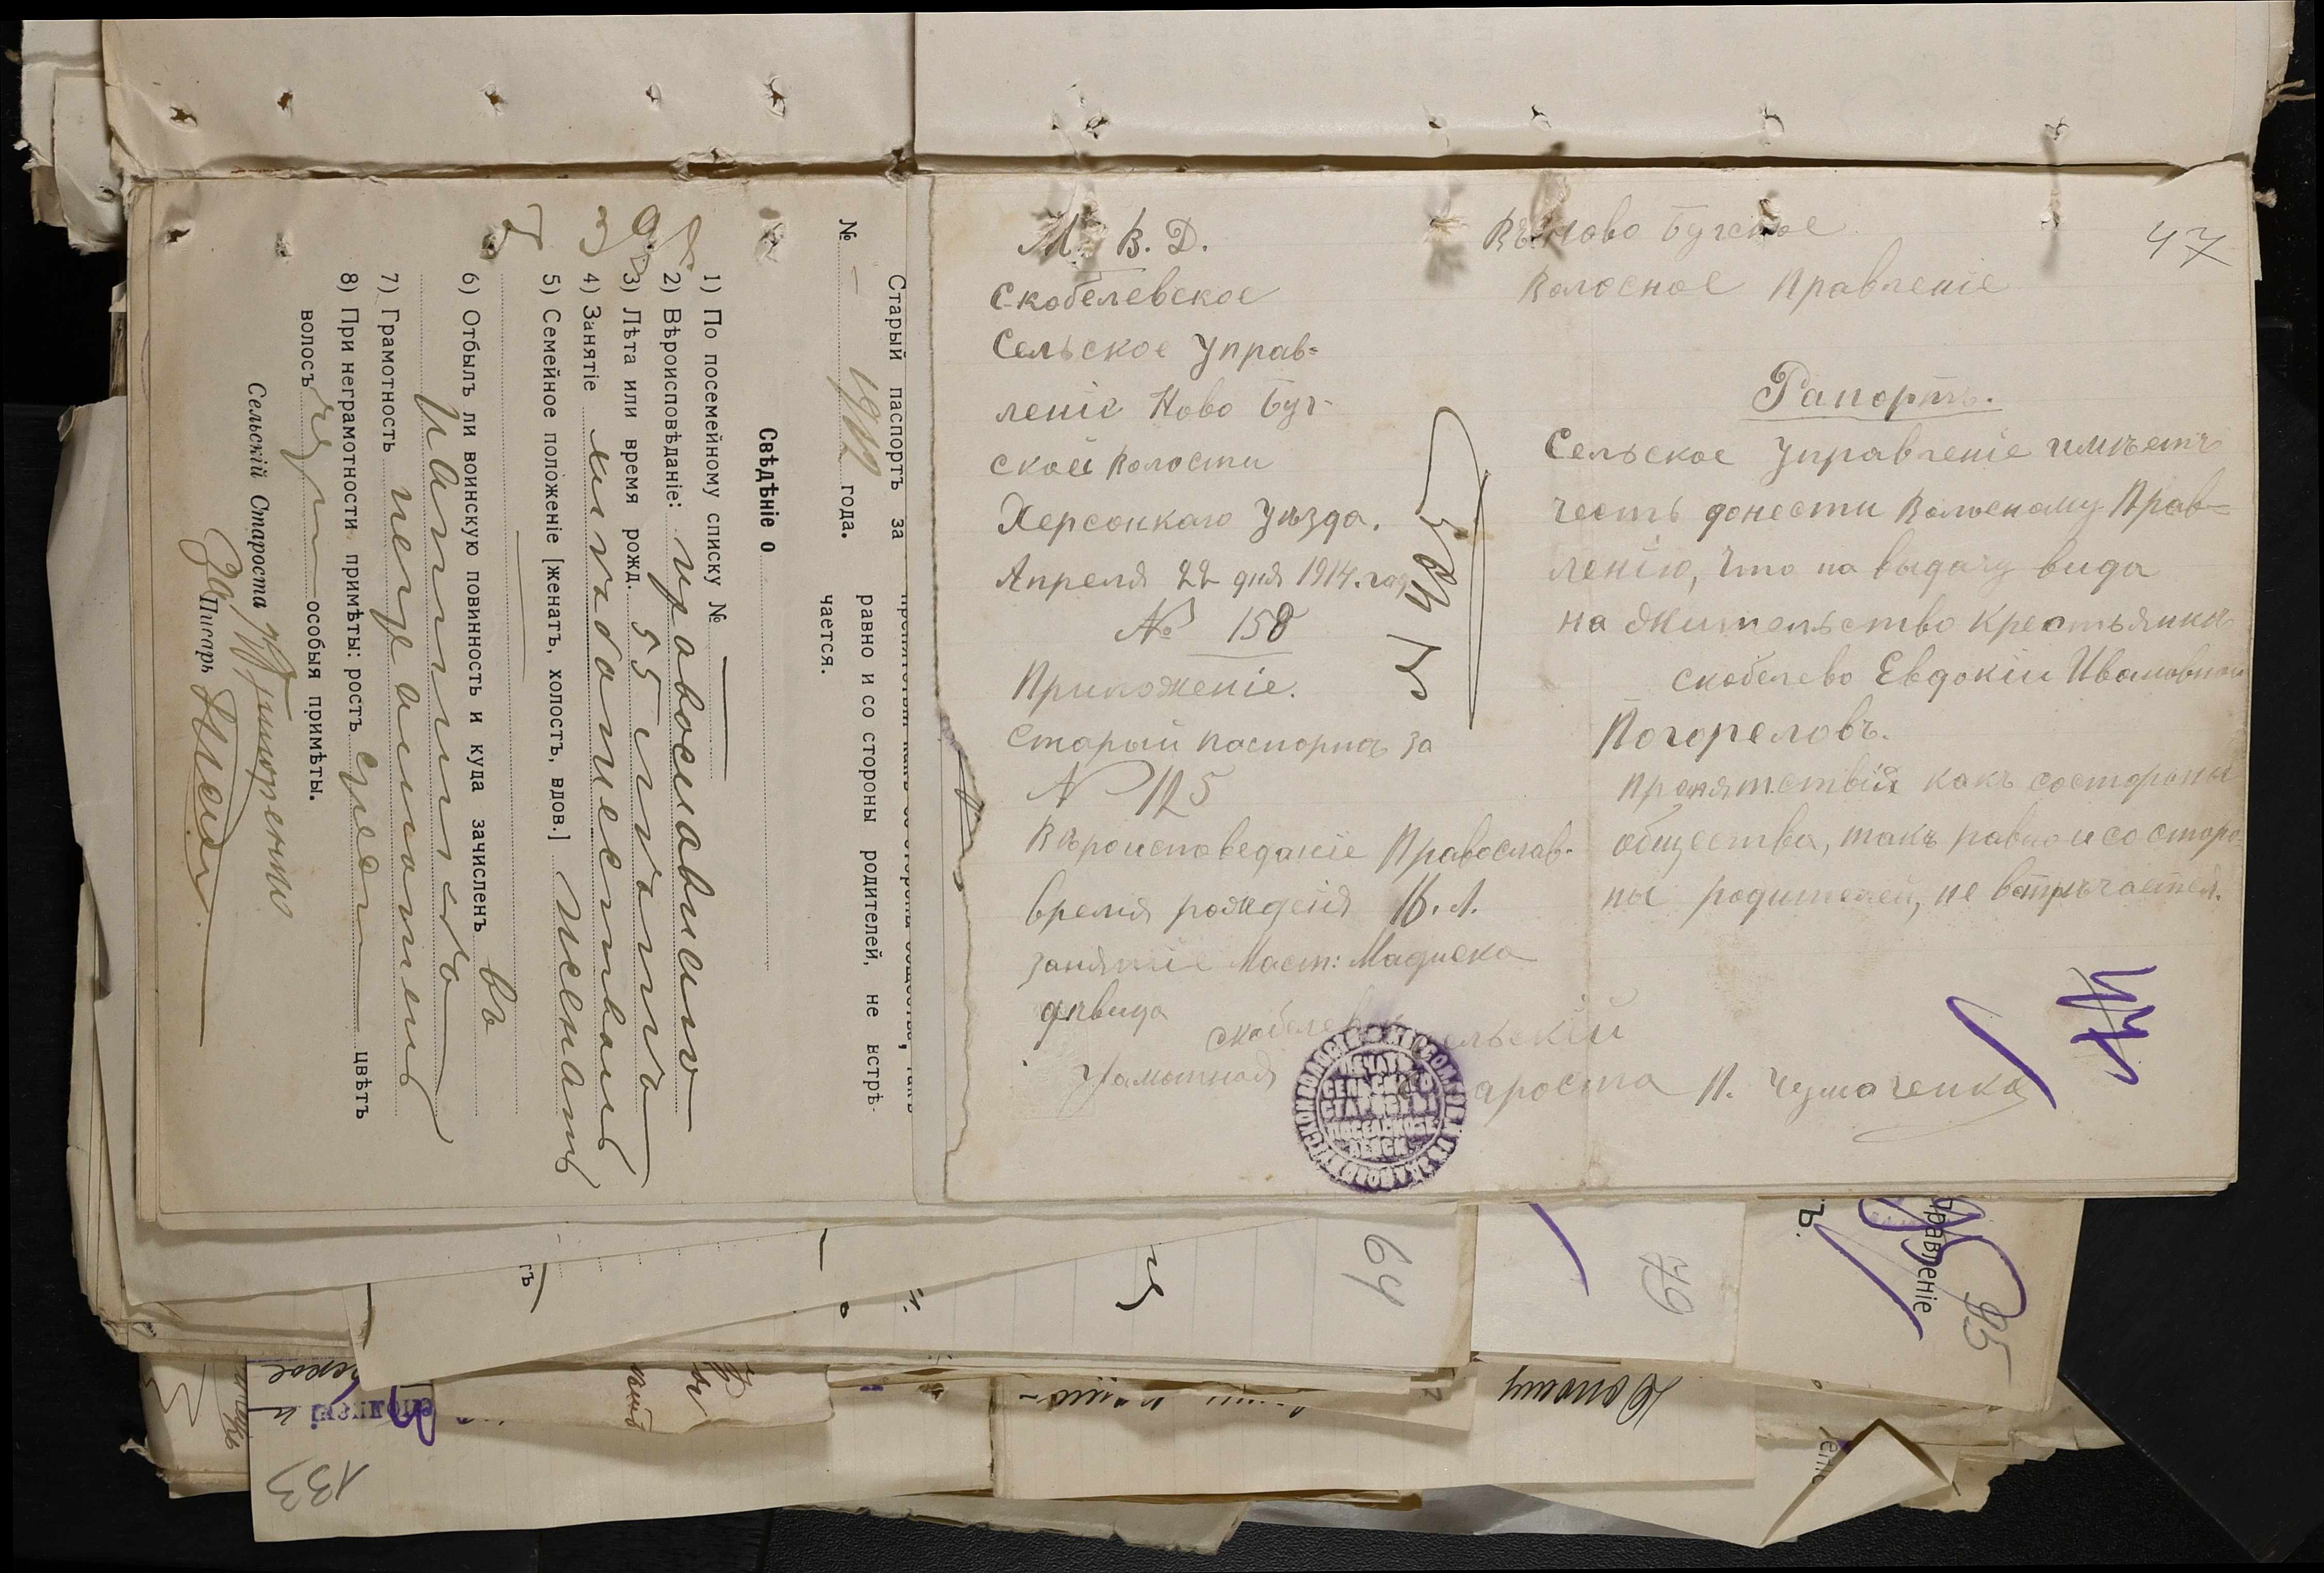 47
М. В. Д.
Скобелевское
Сельское Управ=
леніе Ново Буг-
ской Волости
Херсонкаго Уѣзда.
Апреля 22 дня 1914. год
№ 158
Приложеніе.
Старый паспортъ за
№ 125
Вѣроисповеданіе Православ.
время рожденія 16. л.
занятіе Маст: Мадиска
дѣвица
Грамотная
Въ Ново Бугское
Волосное Правленіе
Рапортъ.
Сельское Управленіе имѣетъ
честь донести Волосному Прав=
ленію, что на выдачу вида
на жительство крестьянки
Скобелево Евдокіи Ивановной
Погореловъ.
препятствій какъ состороны
общества, такъ равно и со сторо-
ны родителей, не встрѣчается.
Скобелевск Сельскій
Староста П. Чумаченко
47
Старый паспортъ за
№ — 1912 года.
равно и со стороны родителей, не встрѣ-
чается.
Свѣдѣніе о
1) По посемейному списку №
2) Вѣроисповѣданіе: православнаго
3) Лѣта или время рожд. 55 лѣтъ
4) Занятіе хлѣбопашествомъ
5) Семейное положеніе [женатъ, холостъ, вдов.] женатъ
6) Отбылъ ли воинскую повинность и куда зачисленъ въ
7) Грамотность неграмотенъ
8) При неграмотности примѣты: ростъ средн цвѣтъ
волосъ особыя примѣты.
Сельскій Староста
Писарь
64
79
95
Правленіе
ъ.
133